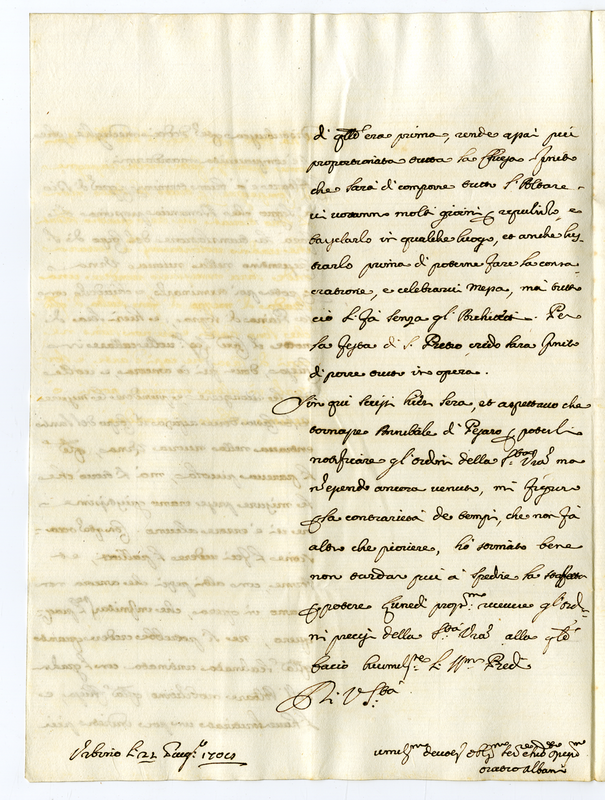 di q.llo era prima, rende assai più
proporzionata tutta la Chiesa. Finito
che sarà di comporre tutto l'Altare,
vi voranno molti giorni p repulirlo, e
in qualche luogo, et anche lus-
trarlo prima di poterne fare la consa-
crazione, e celebrarvi Messa, ma tutto
ciò si fa senza gl'Architetti. Per
la festa di S. Pietro credo sarà finito
di porre tutto in opera.
Sin qui scrissi hieri sera, et aspettavo che
tornasse Annibale di Pesaro p poterli
notificare gl'ordini della S.tà V.ra ma
n essendo ancora venuto, mi figuro
p la contrarietà de tempi, che non fà
altro che piovere, hò stimato bene
non tardar più a spedire la staffetta
p potere Lunedì pross.mo ricevere gl'ordi-
ni precisi della S.tà V.ra alla q.le
bacio humilm.te li SS.mi Piedi
Di V. S.tà
Urbino li 21 1704
umil.mo devot.mo et obl.mo
Oratio Albani